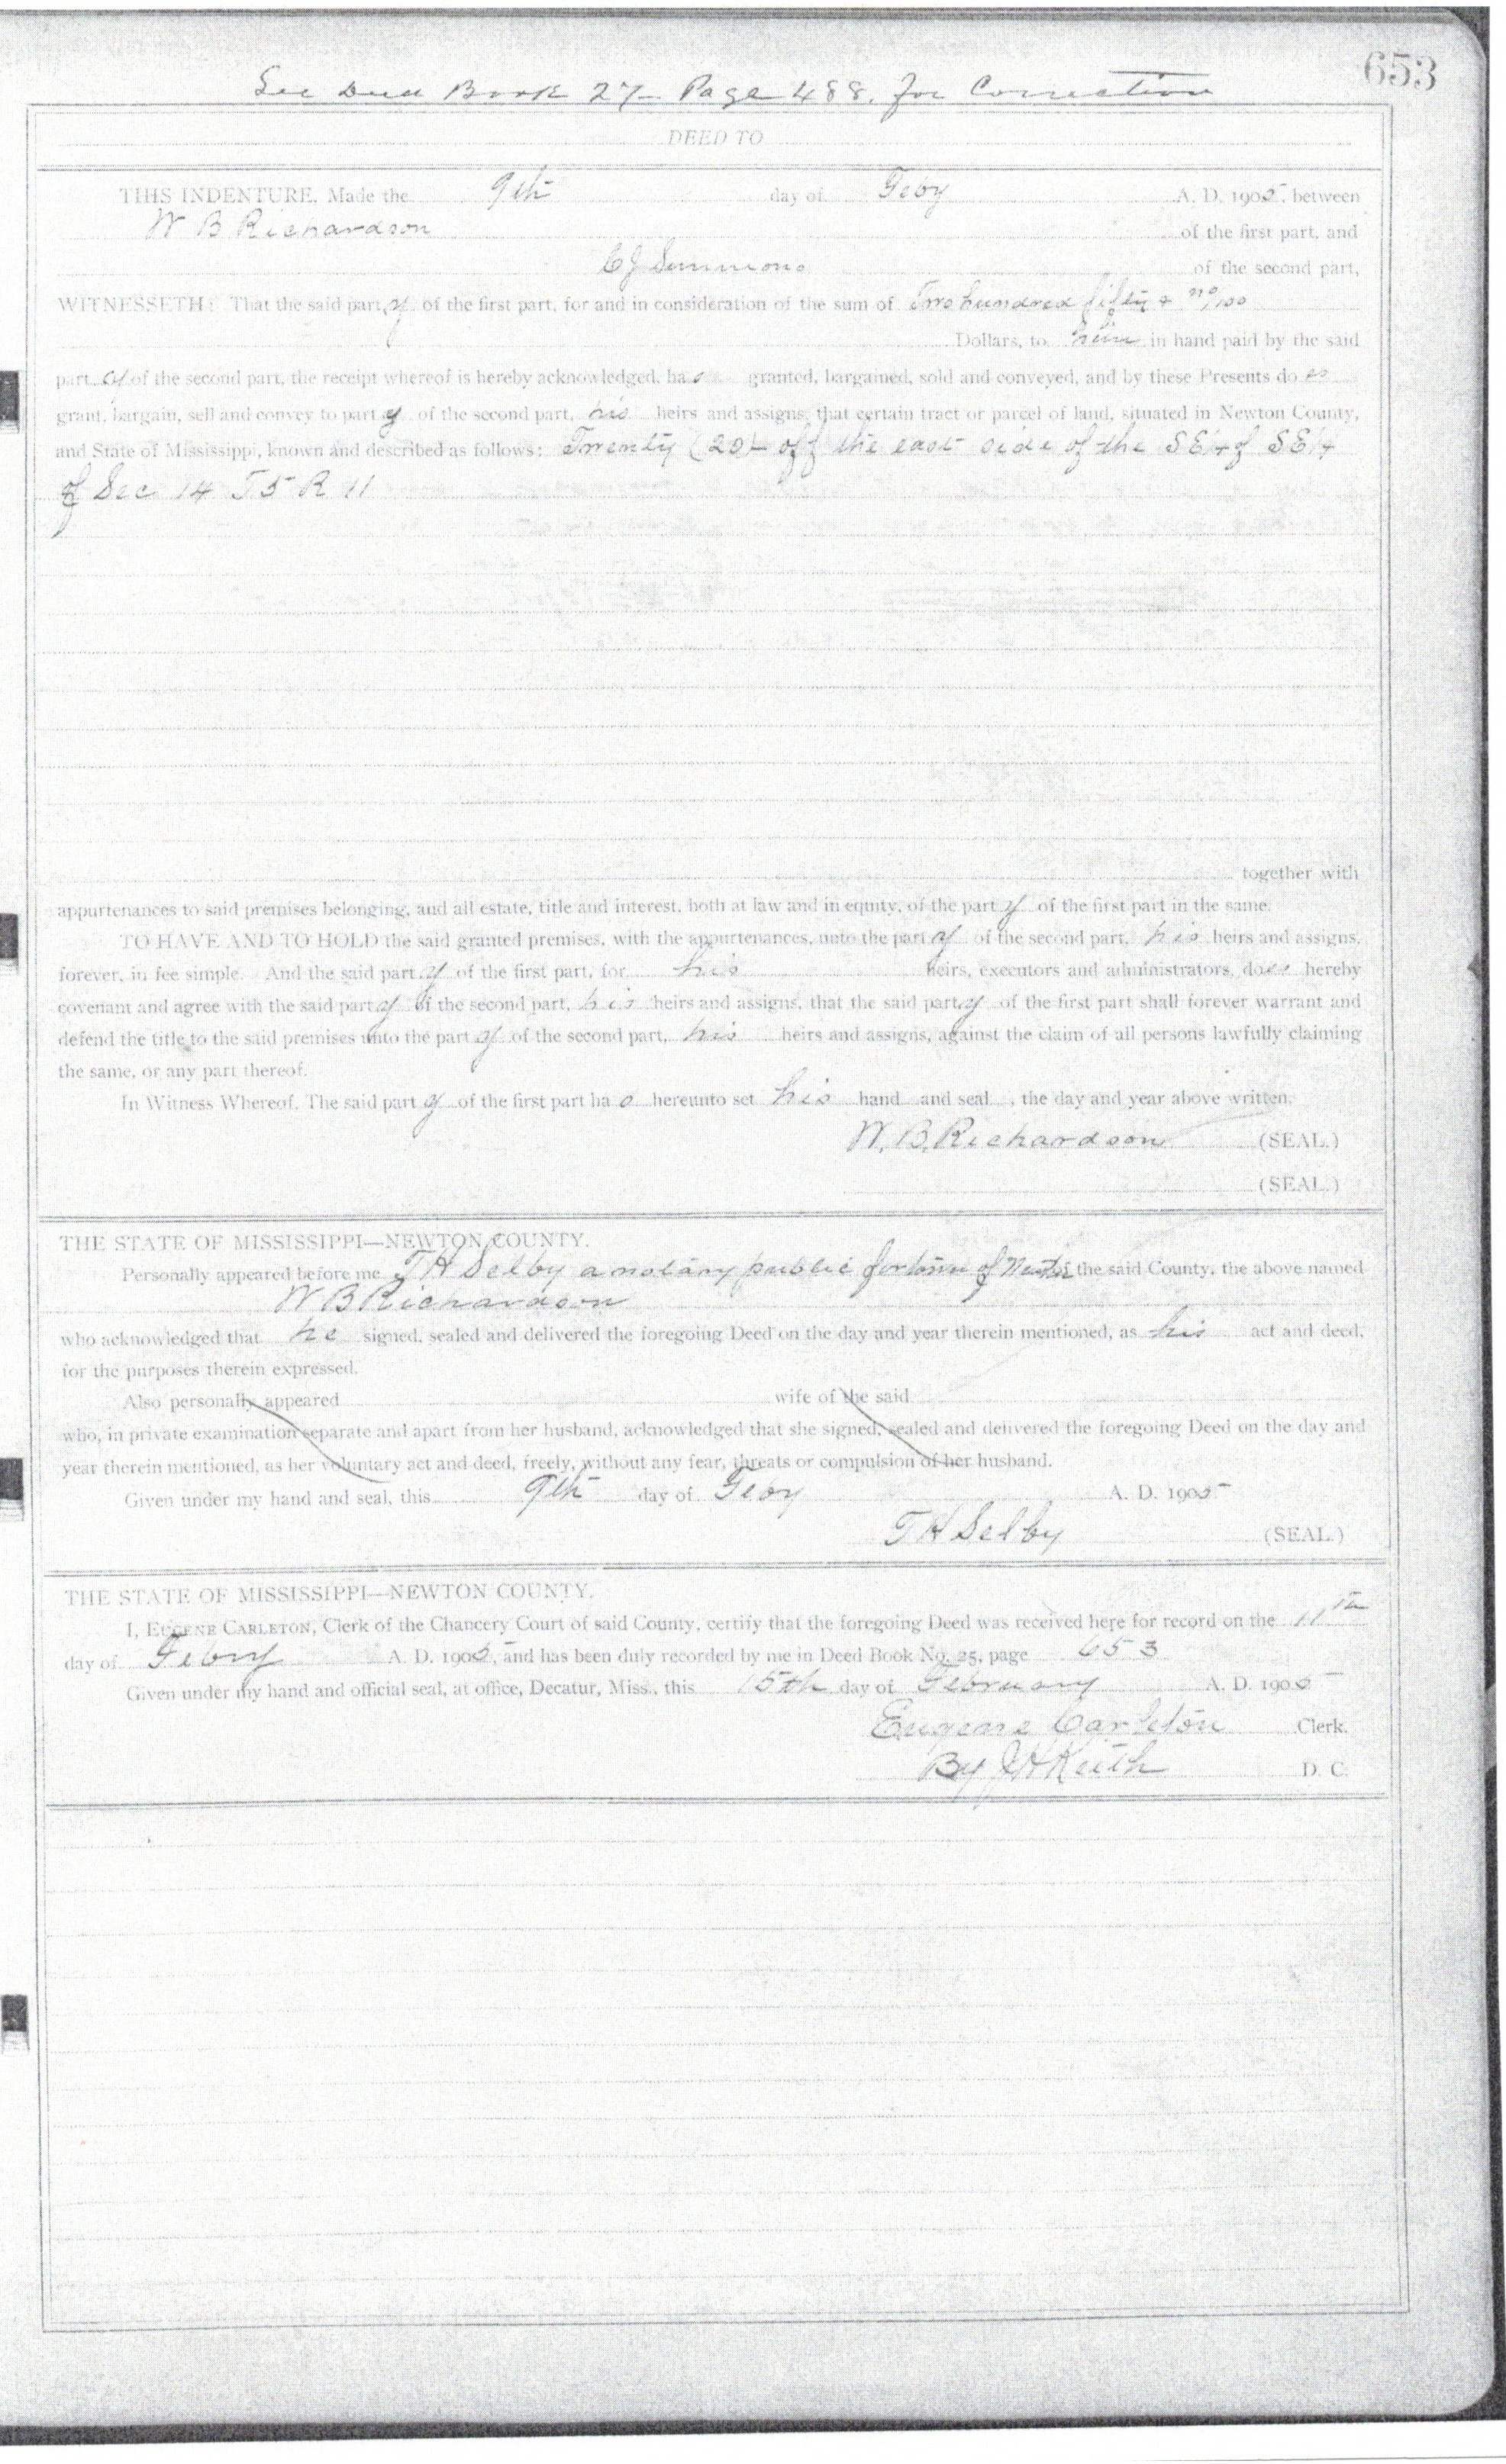 653
See Deed Book 27 - Page 488. for Correction
DEED TO
THIS INDENTURE, Made the 9th day of Feby A. D. 1905, between
W B Richardson of the first part, and
C J Simmons of the second part,
WITNESSETH: That the said party of the first part, for and in consideration of the sum of Two hundred fifty & no/100
Dollars, to him in hand paid by the said
party of the second part, the receipt whereof is hereby acknowledged, has granted, bargained, sold and conveyed, and by these Presents does
grant, bargain, sell and convey to party of the second part, his heirs and assigns, that certain tract or parcel of land, situated in Newton County,
and State of Mississippi, known and described as follows: Twenty (20) off the east side of the SE 1/4 of SE 1/4
of Sec 14 T 5 R 11
together with
appurtenances to said premises belonging, and all estate, title and interest, both at law and in equity, of the party of the first part in the same.
TO HAVE AND TO HOLD the said granted premises, with the appurtenances, unto the party of the second part, his heirs and assigns,
forever, in fee simple. And the said party of the first part, for his heirs, executors and administrators, does hereby
covenant and agree with the said party of the second part, his heirs and assigns, that the said party of the first part shall forever warrant and
defend the title to the said premises unto the party of the second part, his heirs and assigns, against the claim of all persons lawfully claiming
the same, or any part thereof.
In Witness Whereof, The said party of the first part has hereunto set his hand and seal, the day and year above written.
W. B. Richardson (SEAL.)
(SEAL.)
THE STATE OF MISSISSIPPI—NEWTON COUNTY.
Personally appeared before me T H Selby a notary public for town of Newton of the said County, the above named
W B Richardson
who acknowledged that he signed, sealed and delivered the foregoing Deed on the day and year therein mentioned, as his act and deed,
for the purposes therein expressed.
Also personally appeared wife of the said
who, in private examination separate and apart from her husband, acknowledged that she signed, sealed and delivered the foregoing Deed on the day and
year therein mentioned, as her voluntary act and deed, freely, without any fear, threats or compulsion of her husband.
Given under my hand and seal, this 9th day of Feby A. D. 1905
T H Selby (SEAL.)
THE STATE OF MISSISSIPPI—NEWTON COUNTY.
I, EUGENE CARLETON, Clerk of the Chancery Court of said County, certify that the foregoing Deed was received here for record on the 11th
day of Feby A. D. 1905, and has been duly recorded by me in Deed Book No. 25, page 653
Given under my hand and official seal, at office, Decatur, Miss., this 15th day of February A. D. 1905
Eugene Carleton Clerk.
By J H Keith D. C.